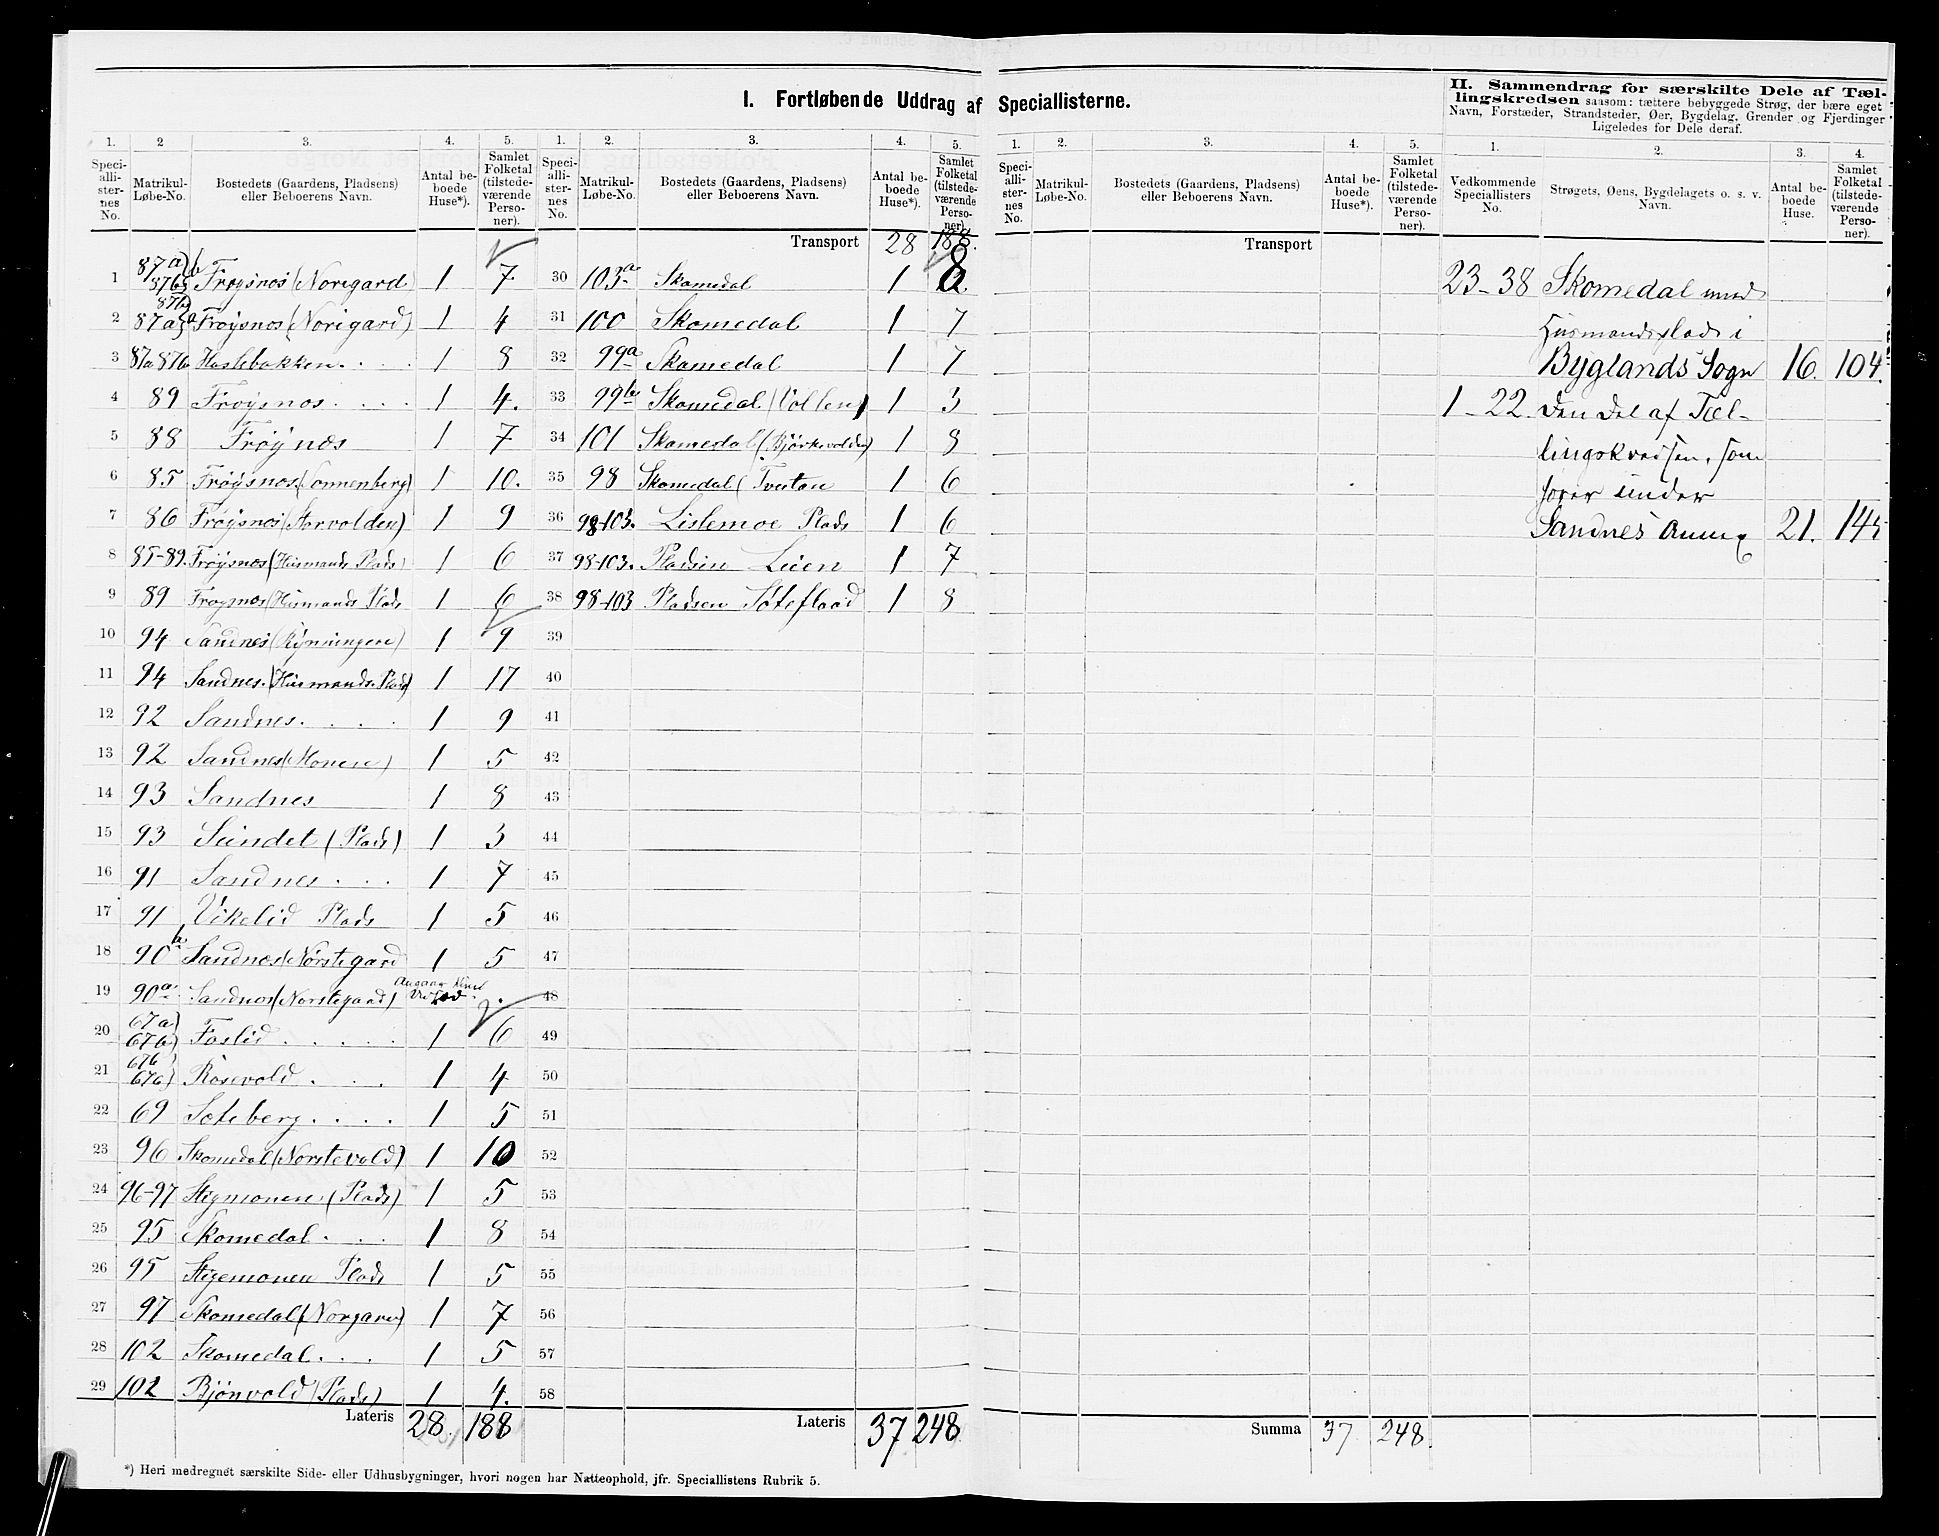 I. Fortløbende Uddrag af Speciallisterne.
II. Sammendrag for særskilte Dele af Tæl-
lingskredsen saasom: tættere bebyggede Strøg, der bære eget
Navn, Forstæder, Strandsteder, Øer, Bygdelag, Grender og Fjerdinger
Ligeledes for Dele deraf.
1. 2 3. 4. 5.
Speciallisternes No. Matrikul-Løbe-No. Bostedets (Gaardens, Pladsens) eller Beboerens Navn. Antal beboede Huse*). Samlet Folketal (tilstedeværende Personer).
1 87a) 87b) b Frøysnes (Norigard 1 7
2 87b) 87a) a Frøysnes (Norigard) 1 4
3 87a 87b Haslebakken 1 8
4 89 Frøysnes 1 4.
5 88 Frøynes 1 7
6 85 Frøysnes (Sonnenberg) 1 10.
7 86 Frøysnes (Storvolden) 1 9
8 85-89. Frøysnes (Husmands Plads) 1 6
9 89 Frøysnes (Husmands Plads 1 6
10 94 Sandnes (Rynningen) 1 9
11 94 Sandnes. (Husmands Plads) 1 17
12 92 Sandnes. 1 9
13 92 Sandnes (Monen) 1 5
14 93 Sandnes 1 8
15 93 Sundet (Plads) 1 3
16 91 Sandnes 1 7
17 91 Vikelid Plads 1 5
18 90b Sandnes (Norstegard 1 5
19 90a Sandnes (Norstegaard)
20 67a) 67b) Foslid 1 6
21 67b 67a) Rosevold 1 4
22 69 Soteberg 1 5
23 96 Skomedal (Norstevold) 1 10
24 96-97 Stegmonen (Plads) 1 5
25 95 Skomedal 1 8
26 95 Stegemonen Plads 1 5
27 97 Skomedal (Norgard) 1 7
28 102 Skomedal 1 5
29 102 Bjønvold (Plads) 1 4.
Lateris 28. 188
1. 2. 3. 4. 5.
Speciallisternes No. Matrikul-Løbe-No. Bostedets (Gaardens, Pladsens) eller Beboerens Navn. Antal beboede Huse*). Samlet Folketal (tilstedeværende Personer).
Transport 28 188.
30 103a Skomedal 1 8
31 100 Skomedal 1 7
32 99a Skomedal 1 7
33 99b Skomedal (Vollen) 1 3
34 101 Skomedal (Bjørkevolden) 1 8
35 98 Skomedal (Tveitan 1 6
36 98-103. Lislemoe Plads 1 6
37 98-103. Pladsen Leien 1 7
38 98-103 Pladsen Soteflaad 1 8
39
40
41
42
43
44
45
46
47
48
49
50
51
52
53
54
55
56
57
58
Lateris 37 248
1. 2. 3. 4. 5.
Speciallisternes No. Matrikul-Løbe-No. Bostedets (Gaardens, Pladsens) eller Beboerens Navn. Antal beboede Huse*). Samlet Folketal (tilstedeværende Personer).
Transport
Summa 37 248.
1. 2. 3. 4.
Vedkommende Speciallisters No. Strøgets, Øens, Bygdelagets o. s. v. Navn. Antal beboede Huse. Samlet Folketal (tilstedeværende Personer).
23-38 Skomedal med
Husmandsplads i
Byglands Sogn 16. 104.
1-22 den del af Tæl-
lingskredsen, som
hører under
Sandnes Annex 21.
*) Heri medregnet særskilte Side- eller Udhusbygninger, hvori nogen har Natteophold, jfr. Speciallistens Rubrik 5.